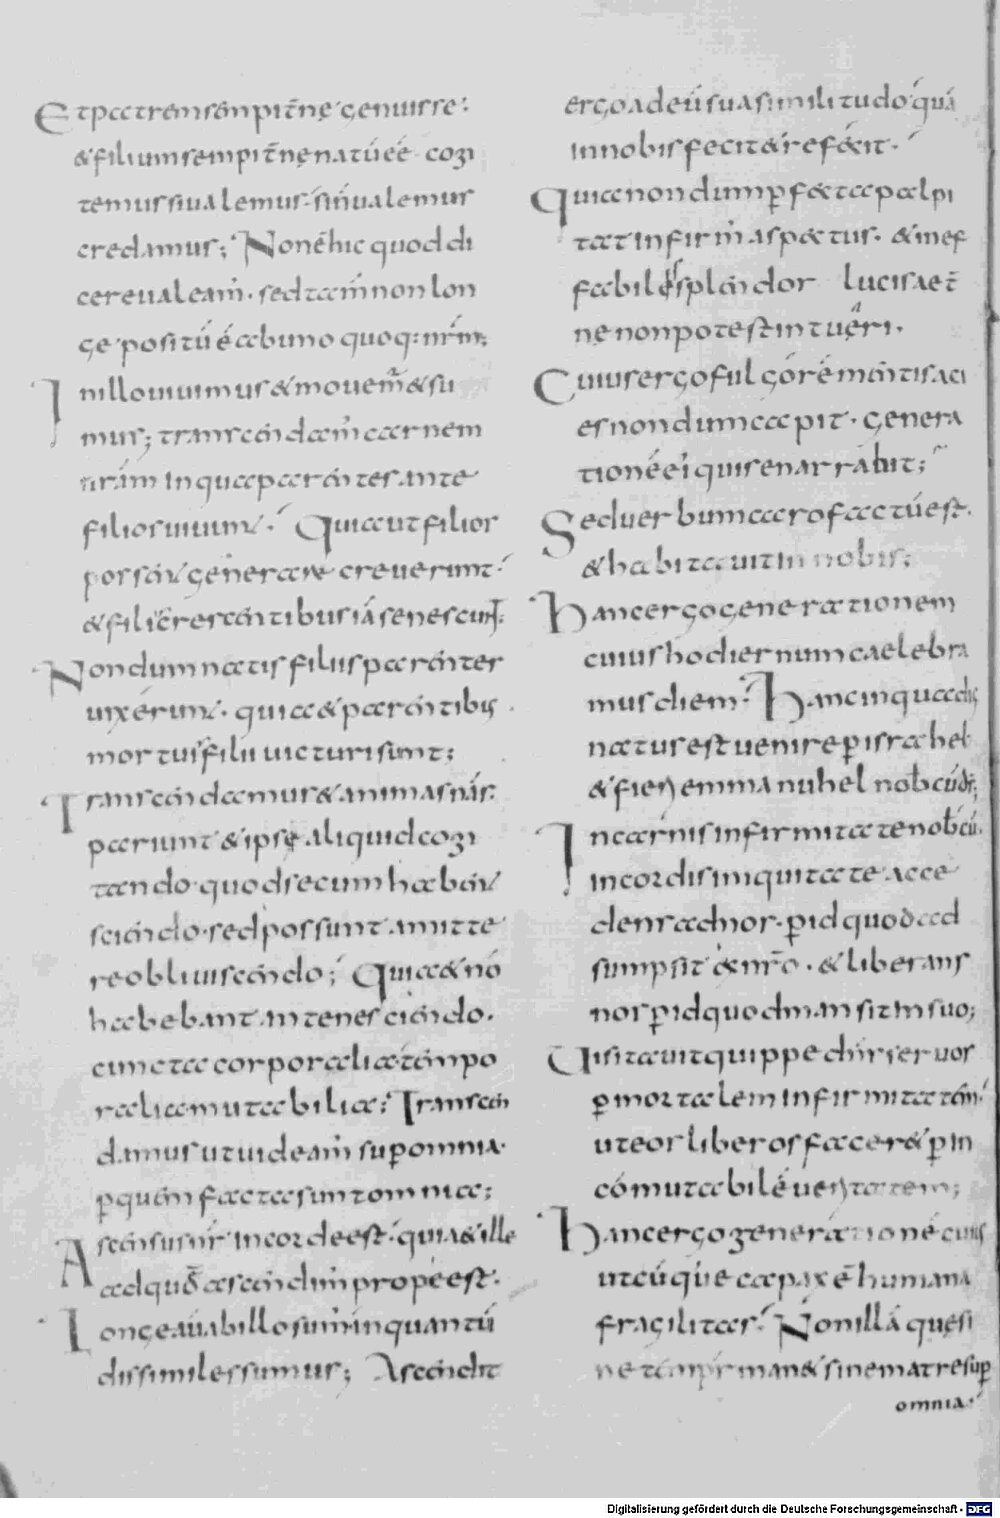 Et patrem sempit̄ne genuisse;
& filium sempit̄ne natū eē · cogi
temus si ualemus · sin̄ ualemus
credamus; Non ē hic quod di
cere ualeam̄ · sed tam̄ non lon
ge positū ē a buno quoq: nr̄m;
In illo uiuimus & mouem̄ & su
mus; transcendam̄ carnem
nr̄am in qua parentes ante
filios uiuunt · Quia ut filior
possent generare creuerunt ·
& filiis crescentibus iā senescunt;
Nondum natis filiis parentes
uixerunt · quia & parentibus
mortuis filii uicturi sunt;
Transcendamus & animas nr̄as;
pariunt & ipse aliquid cogi
tando · quod secum habent
sciendo · sed possunt amitte
re obliuiscendo; Quia & nō
habebant antenesciendo ·
cuncta corporalia & tempo
ralia mutabilia; Transcen
damus ut uideam̄ sup omnia ·
p quem facta sunt omnia;
Ascensus nr̄ in corde est · quia & ille
ad quē ascendim̄ prope est ·
Longe aūt ab illo sum̄ in quantū
dissimiles sumus; Ascendit
ergo ad eū sua similitudo quā
in nobis fecit & refecit ·
Quia non dum pfecta palpi
tat infirm̄ aspectus · & inef
fabilis splendor lucis aet̄
ne non potest intueri ·
Cuius ergo fulgorē mentis aci
es nondum capit · genera
tionē ei quis enarrabit;
Sed uerbum caro factū est ·
& habitauit in nobis;
Hanc ergo generationem
cuius hodiernum caelebra
mus diem · Hanc in qua dig
natus est uenire p israhel
& fieri emmanuhel nob̄cū ds̄;
In carnis infirmitate nob̄cū ·
in cordis iniquitate acce
denr ad nos · p id quod ad
sumpsit de nr̄o · & liberans
nos p id quod mansit in suo;
Uisitauit quippe dn̄s seruos
p mortalem infirmitatem ·
ut eos liberos facer& p in
cōmutabilē ueritatem;
Hanc ergo generationē cuius
utcūque capax ē humana
fragilitas · Non illā que si
ne temp̄r man& sine matre sup
omnia ·
Digitalisierung gefördert durch die Deutsche Forschungsgemeinschaft - DFG